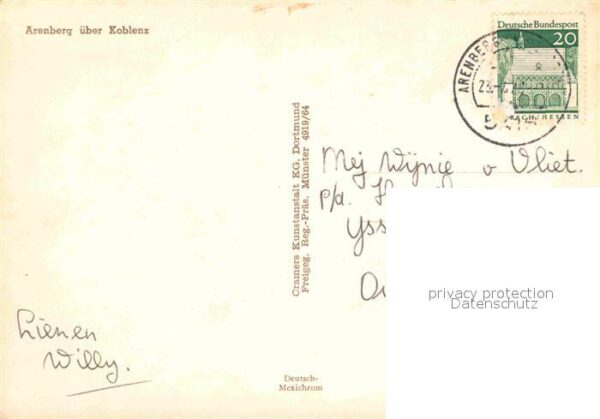 Arenberg über Koblenz
Deutsche Bundespost
20
ARENBERG
23.
LORSCH/HESSEN
Cramers Kunstanstalt KG, Dortmund
Freigeg. Reg.-Präs. Münster 4919/64
Mej Wijnie v Vliet.
p/a.
Yss
privacy protection
Datenschutz
Lienen
Willy.
Deutsch-
Mexichrom